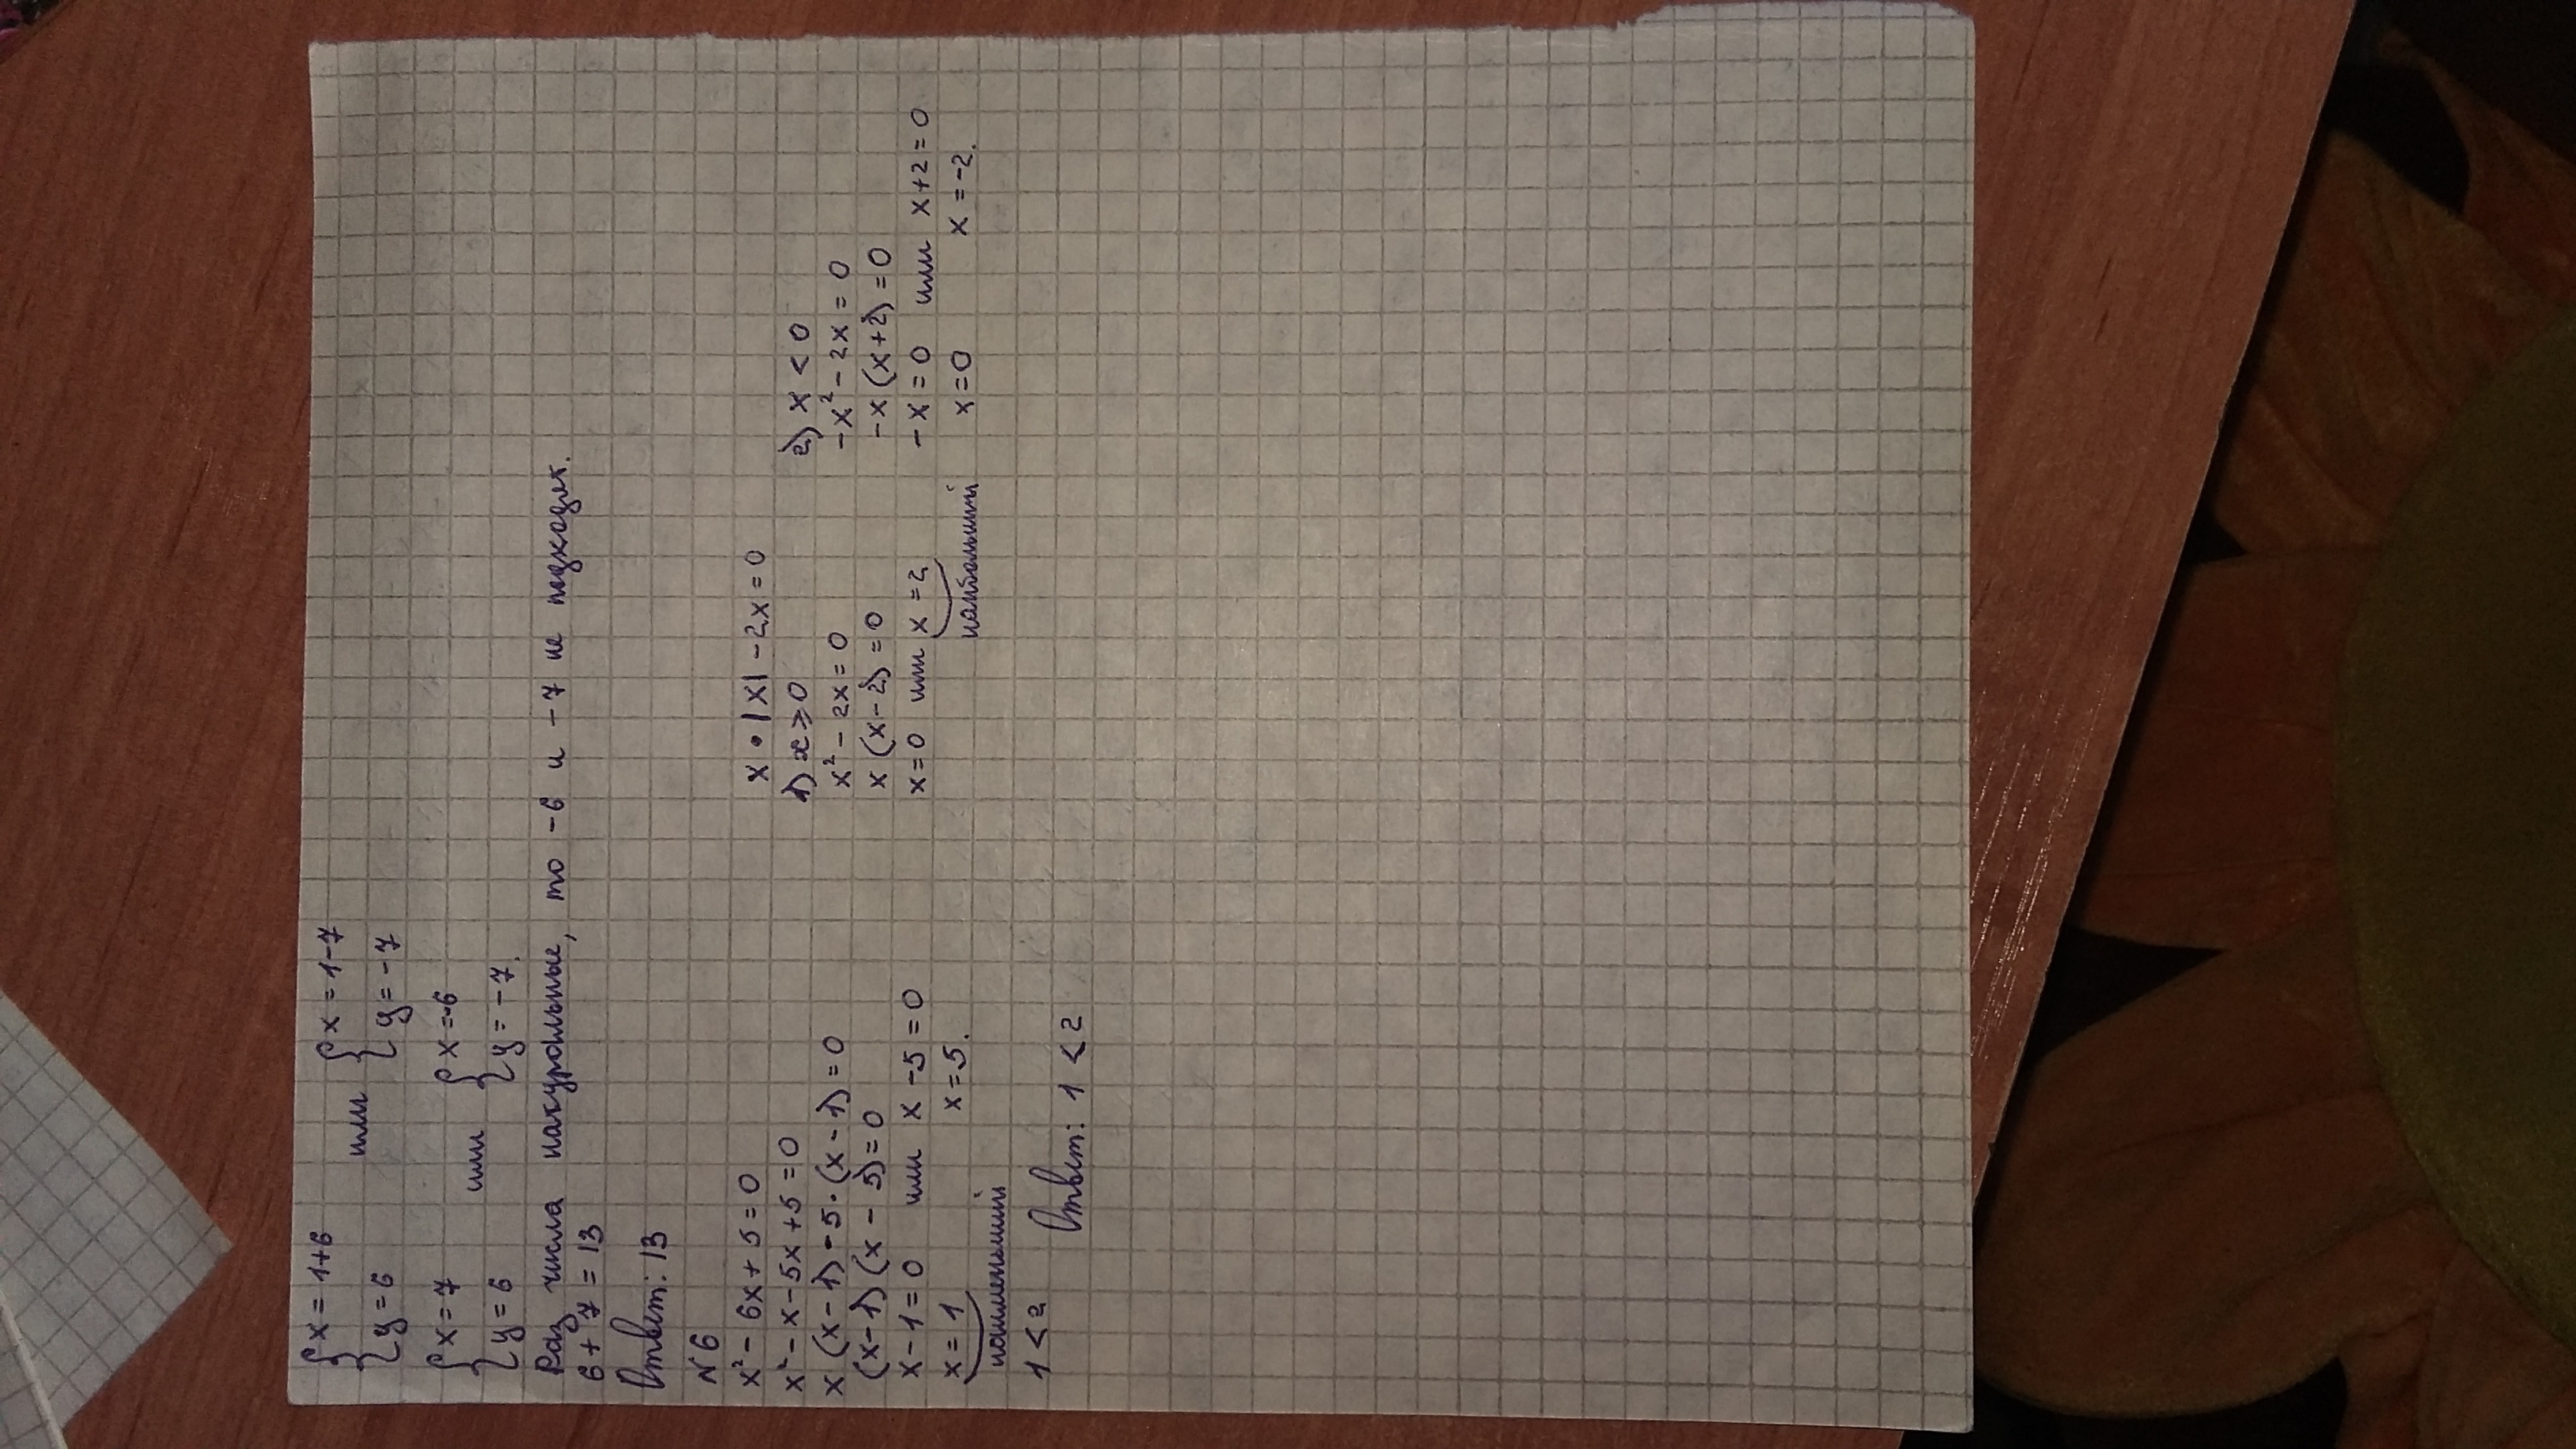 {x = 1+6 или {x = 1-7
{y = 6 {y = -7
{x = 7 или {x = -6
{y = 6 {y = -7.
Раз числа натуральные, то -6 и -7 не подходят.
6 + 7 = 13
Ответ: 13
N6
x² - 6x + 5 = 0
x² - x - 5x + 5 = 0
x (x - 1) - 5·(x - 1) = 0
(x - 1) (x - 5) = 0
x - 1 = 0 или x - 5 = 0
x = 1 x = 5.
наименьший
1 < 2
x • |x| - 2x = 0
1) x ⩾ 0
x² - 2x = 0
x (x - 2) = 0
x = 0 или x = 2
наибольший
2) x < 0
-x² - 2x = 0
-x (x + 2) = 0
-x = 0 или x + 2 = 0
x = 0 x = -2.
Ответ: 1 < 2